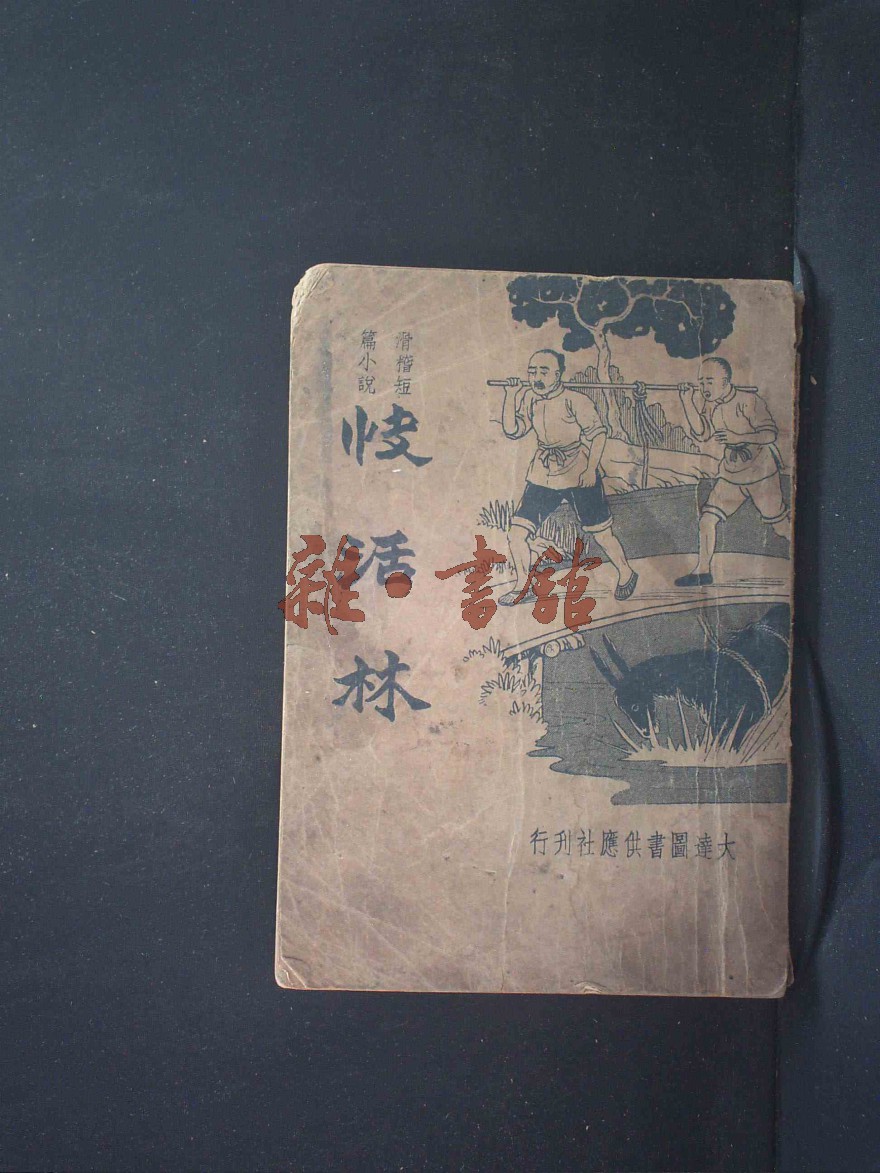 滑稽短
篇小說
快活林
大達圖書供應社刊行
雜·書館